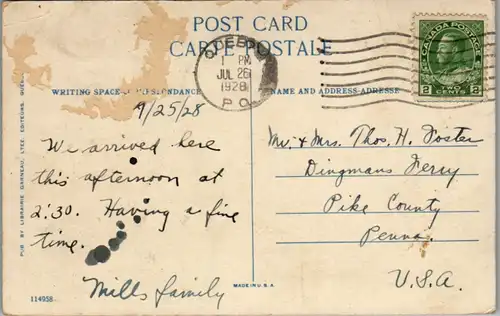 POST CARD
CARTE POSTALE
QUEBEC
1 PM
JUL 26
1928
P.Q.
CANADA POSTAGE
2 CENTS 2
WRITING SPACE-CORRESPONDANCE
NAME AND ADDRESS-ADRESSE
9/25/28
We arrived here
this afternoon at
2:30. Having a fine
time.
Mills family
Mr. & Mrs. Thos. H. Foster
Dingmans Ferry
Pike County
Penna.
U.S.A.
PUB BY LIBRAIRIE GARNEAU, LTEE. EDITEURS. QUEBEC
114958
MADE IN U.S.A.